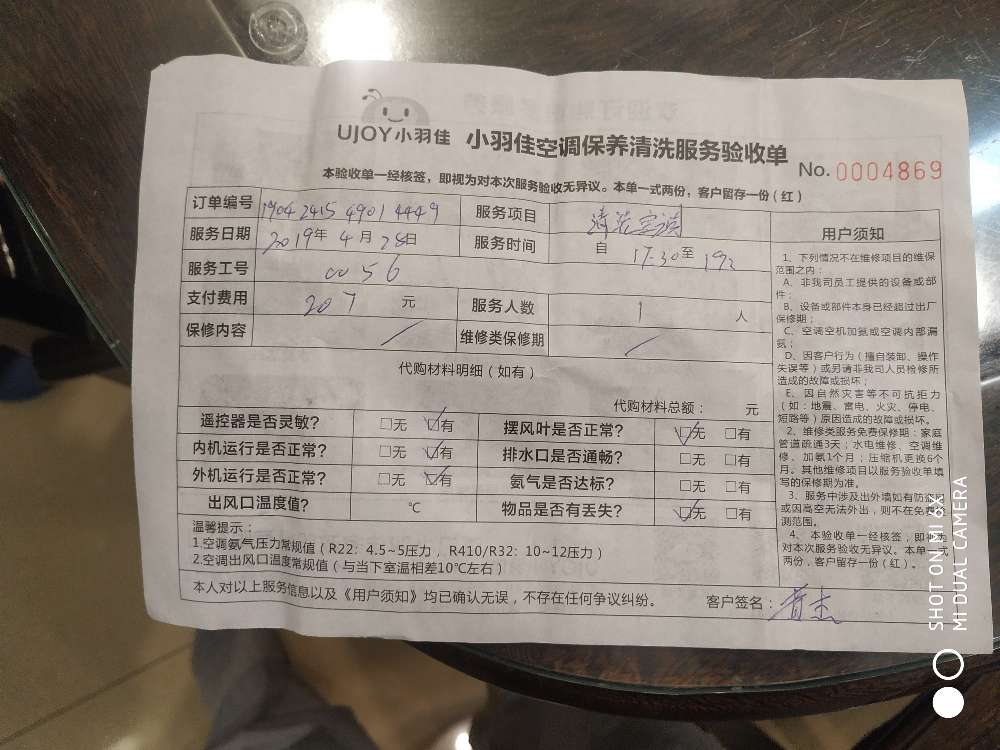 UJOY小羽佳 小羽佳空调保养清洗服务验收单
No. 0004869
本验收单一经核签，即视为对本次服务验收无异议。本单一式两份，客户留存一份（红）
订单编号 服务项目
服务日期 2019年 4月 28日 服务时间 自 17:30 至
服务工号 0056
支付费用 207 元 服务人数 1 人
保修内容 / 维修类保修期 /
代购材料明细（如有）
代购材料总额： 元
遥控器是否灵敏? □无 ☑有 摆风叶是否正常? ☑无 □有
内机运行是否正常? □无 ☑有 排水口是否通畅? □无 □有
外机运行是否正常? □无 ☑有 氨气是否达标? □无 □有
出风口温度值? ℃ 物品是否有丢失? ☑无 □有
温馨提示：
1.空调氨气压力常规值（R22：4.5~5压力，R410/R32：10~12压力）
2.空调出风口温度常规值（与当下室温相差10℃左右）
本人对以上服务信息以及《用户须知》均已确认无误，不存在任何争议纠纷。 客户签名：
用户须知
1、下列情况不在维修项目的维保
范围之内：
A、非我司员工提供的设备或部
件；
B、设备或部件本身已经超过出厂
保修期；
C、空调空机加氨或空调内部漏
氨；
D、因客户行为（擅自装卸、操作
失误等）或另请非我司人员检修所
造成的故障或损坏；
E、因自然灾害等不可抗拒力
（如：地震、雷电、火灾、停电、
短路等）原因造成的故障或损坏。
2、维修类服务免费保修期：家庭
管道疏通3天；水电维修、空调维
修、加氨1个月；压缩机更换6个
月。其他维修项目以服务验收单填
写的保修期为准。
3、服务中涉及出外墙如有防盗
或因高空无法外出，则不在免费
测范围。
4、本验收单一经核签，即视为
对本次服务验收无异议。本单一式
两份，客户留存一份（红）。
SHOT ON MI 6X
MI DUAL CAMERA